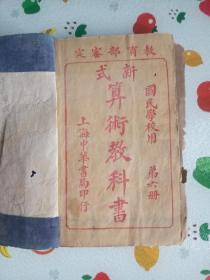 教育部審定
新式
算術教科書
國民學校用
第六册
上海中華書局印行